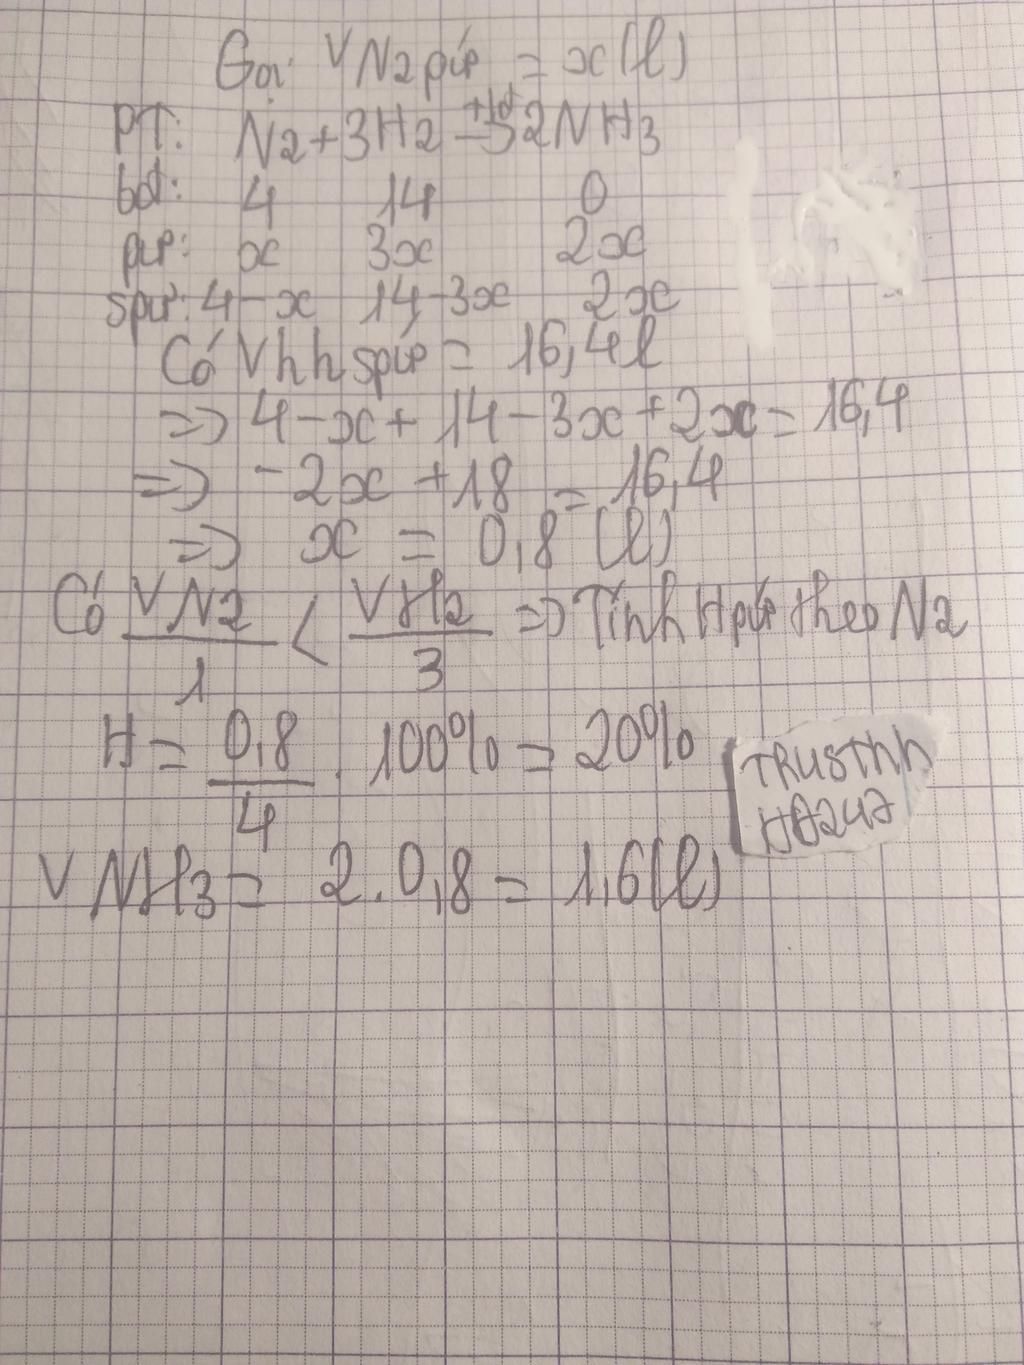 Gọi VN2 pứ = x(l)
PT: N2 + 3H2 +to→ 2NH3
bđ: 4 14 0
pứ: x 3x 2x
spứ: 4-x 14-3x 2x
Có Vhh spứ = 16,4l
=> 4-x + 14-3x + 2x = 16,4
=> -2x + 18 = 16,4
=> x = 0,8 (l)
Có VN2/1 < VH2/3 => Tính H pứ theo N2
H = 0,8/4 . 100% = 20%
TRUSTnh
VNH3 = 2.0,8 = 1,6(l)